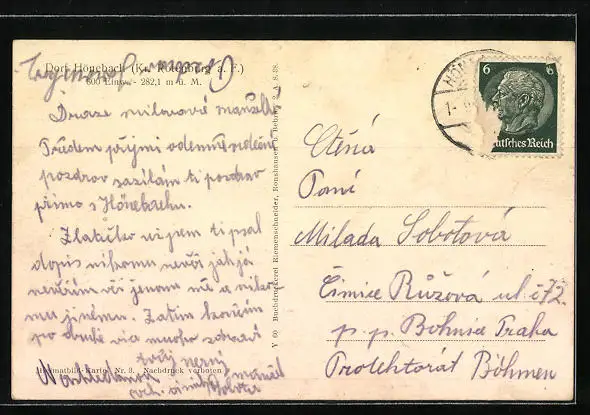 Dorf Hönebach (Kr. Rotenburg a. F.)
600 Einw. - 282,1 m ü. M.
Draze milovaná
Předem přijmi odemně srdečné
pozdrav zasílám ti pozdrav
přímo s Hönebachu.
Zlatíčko už jsem ti psal
dopis nikomu nevěř jak já
nevěřím věř jenom mě a niko-
mu jinému. Zatím končím
po druhé více
tvůj věrný
manžel
Heimatbild-Karte Nr. 3. Nachdruck verboten
Y 60 Buchdruckerei Riemenschneider, Ronshausen b. Bebra
HÖN
6 6
Deutsches Reich
Ctěná
Paní
Milada Sobotová
Čimice Růžová ul. č 72.
p. p. Bohnice Praha
Protektorát Böhmen